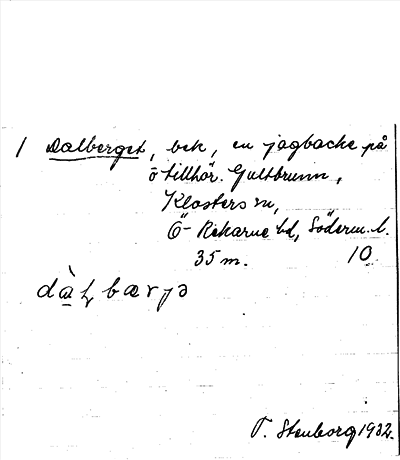 1 Dalberget, bek, en jagbacke på
ö tillhör. Gultbrunn,
Klosters sn,
Ö- Rekarne hd, Söderm. l.
35 m. 10
T. Stenborg 1932.